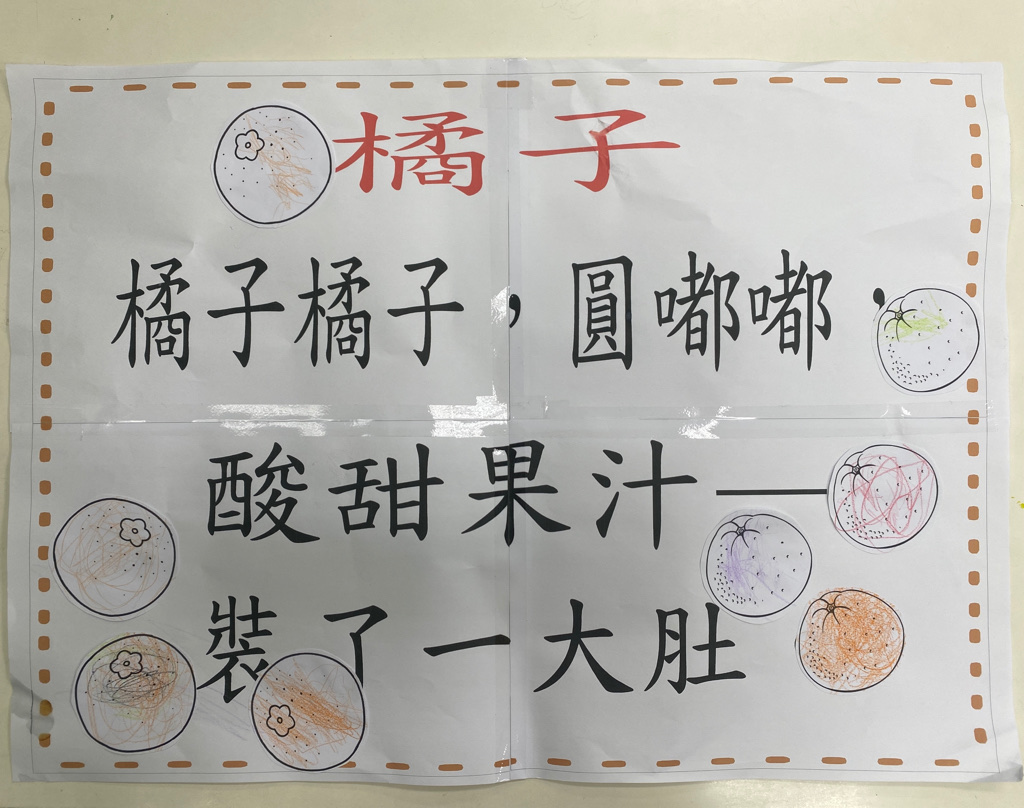 橘子
橘子橘子，圓嘟嘟，
酸甜果汁—
裝了一大肚